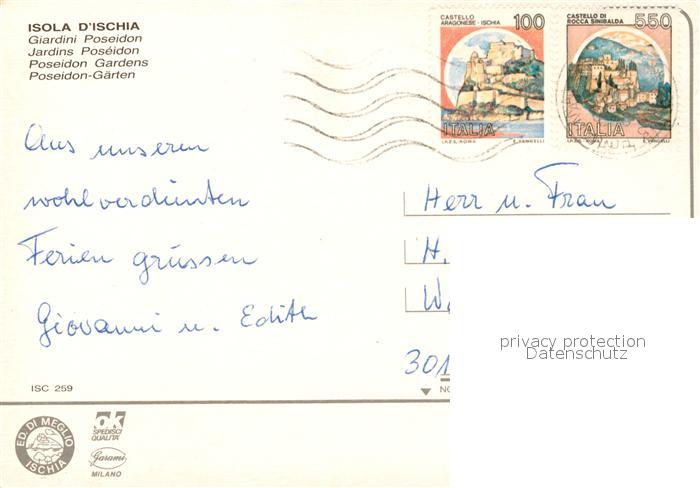 ISOLA D'ISCHIA
Giardini Poseidon
Jardins Poséidon
Poseidon Gardens
Poseidon-Gärten
CASTELLO
ARAGONESE - ISCHIA
100
ITALIA
I.P.Z.S. - ROMA
E. VANGELLI
CASTELLO DI
ROCCA SINIBALDA
550
ITALIA
I.P.Z.S. - ROMA
E. VANGELLI
Aus unseren
wohlverdienten
Ferien grüssen
Giovanni u. Edith
Herr u. Frau
H.
301
privacy protection
Datenschutz
ISC 259
ED. DI MEGLIO
ISCHIA
ok
SPEDISCI
QUALITÀ
Garami
MILANO